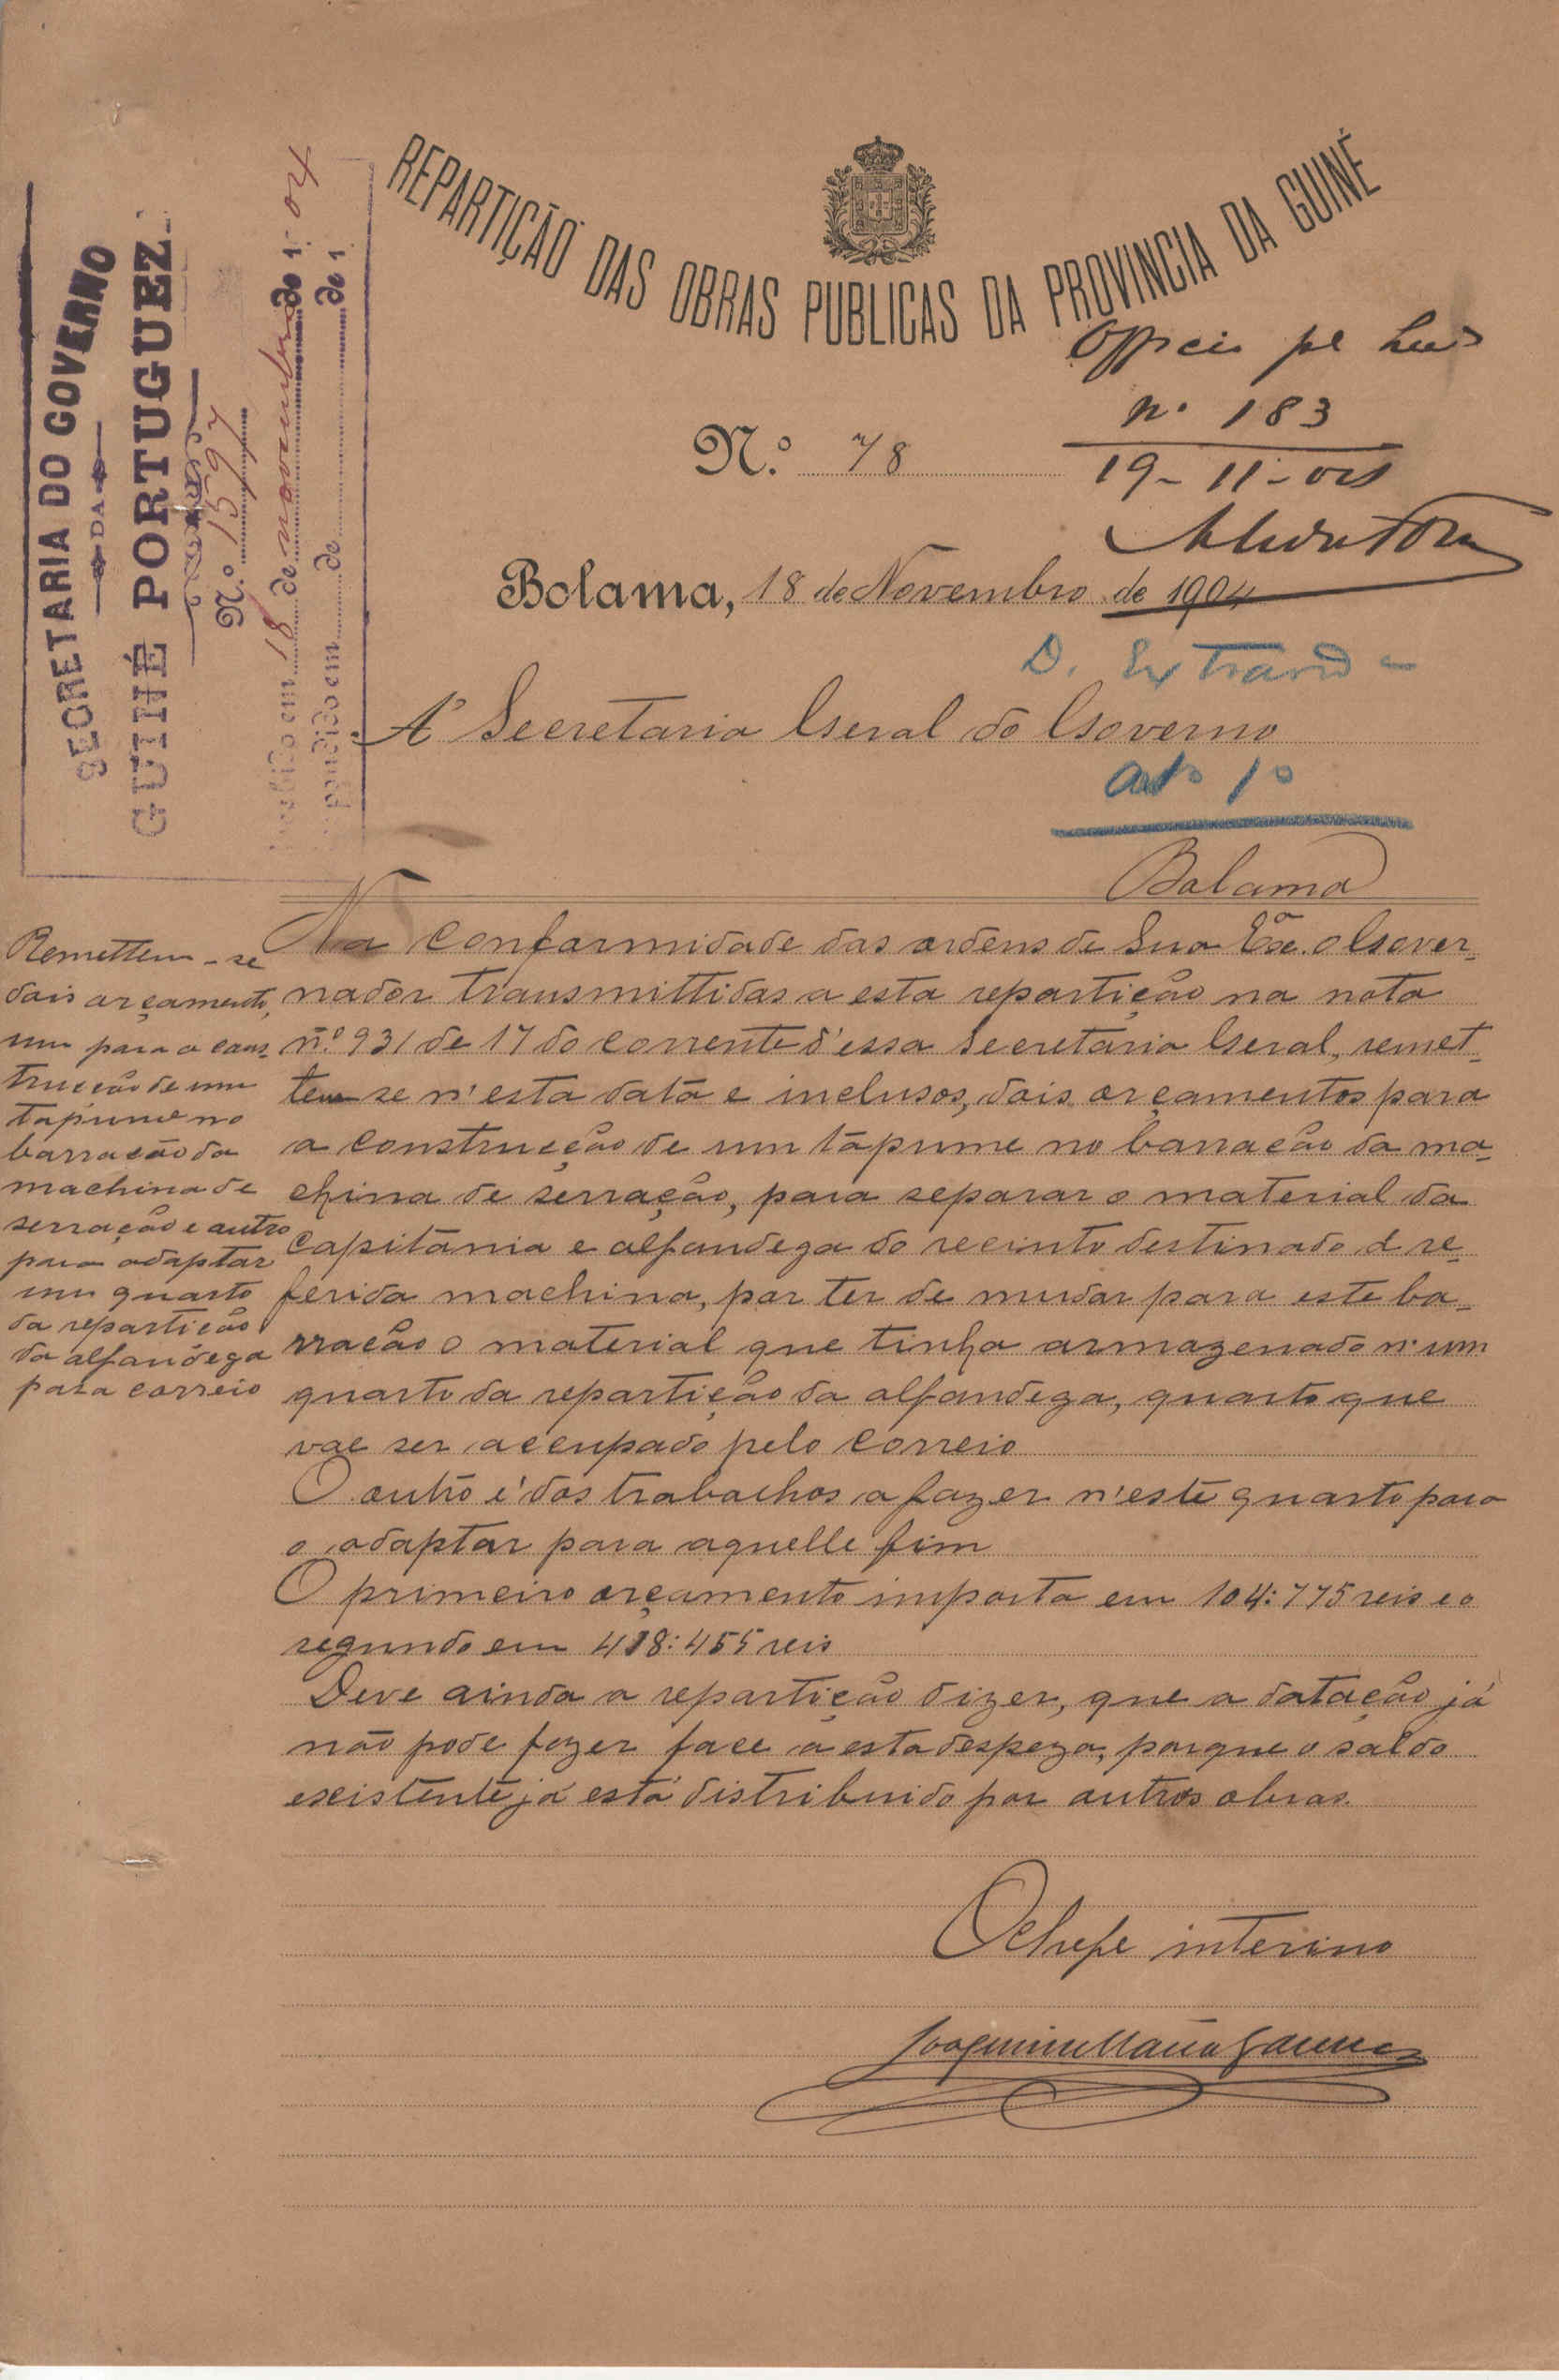 REPARTIÇÃO DAS OBRAS PUBLICAS DA PROVINCIA DA GUINÉ
SECRETARIA DO GOVERNO
DA
GUINÉ PORTUGUEZ
N.º 1597
em 18 de novembro de 1 04
em de de 1
n.º 183
19-11-04
N.º 78
Bolama, 18 de Novembro de 1904
D. Extraord
Á Secretaria Geral do Governo
art.º 1º
Bolama
Remettem-se
dois orçamentos,
um para a cons
trucção de um
tapume no
barracão da
machina de
serração e outro
para adaptar
um quarto
da repartição
da alfandega
para correio
Na conformidade das ordens de Sua Exª. o Gover-
nador transmittidas a esta repartição na nota
n.º 931 de 17 do corrente d'essa Secretaria Geral, remet-
tem se n'esta data e inclusos, dois orçamentos para
a construcção de um tapume no barracão da ma-
china de serração, para separar o material da
capitania e alfandega do recinto destinado á re-
ferida machina, por ter de mudar para este ba-
rracão o material que tinha armazenado n'um
quarto da repartição da alfandega, quarto que
vae ser occupado pelo correio
O outro é dos trabalhos a fazer n'este quarto para
o adaptar para aquelle fim
O primeiro orçamento importa em 104:775 reis e o
segundo em 418:455 reis
Deve ainda a repartição dizer, que a dotação já
não pode fazer face a esta despeza, porque o saldo
existente já está distribuido por outras obras.
O chefe interino
Joaquim Maria